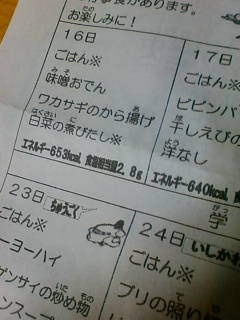 事食があります。
お楽しみに！
16日
ごはん※
味噌おでん
ワカサギのから揚げ
白菜の煮びたし※
エネルギー653kcal 食塩相当量2.8g
17日
ごはん※
ビビンバ
干しえびの
洋なし
エネルギー640kcal
学
23日
ちゅうごく
ごはん※
ーヨーハイ
ゲンサイの炒め物
ンスープ
24日
いしかわ
ごはん※
ブリの照り